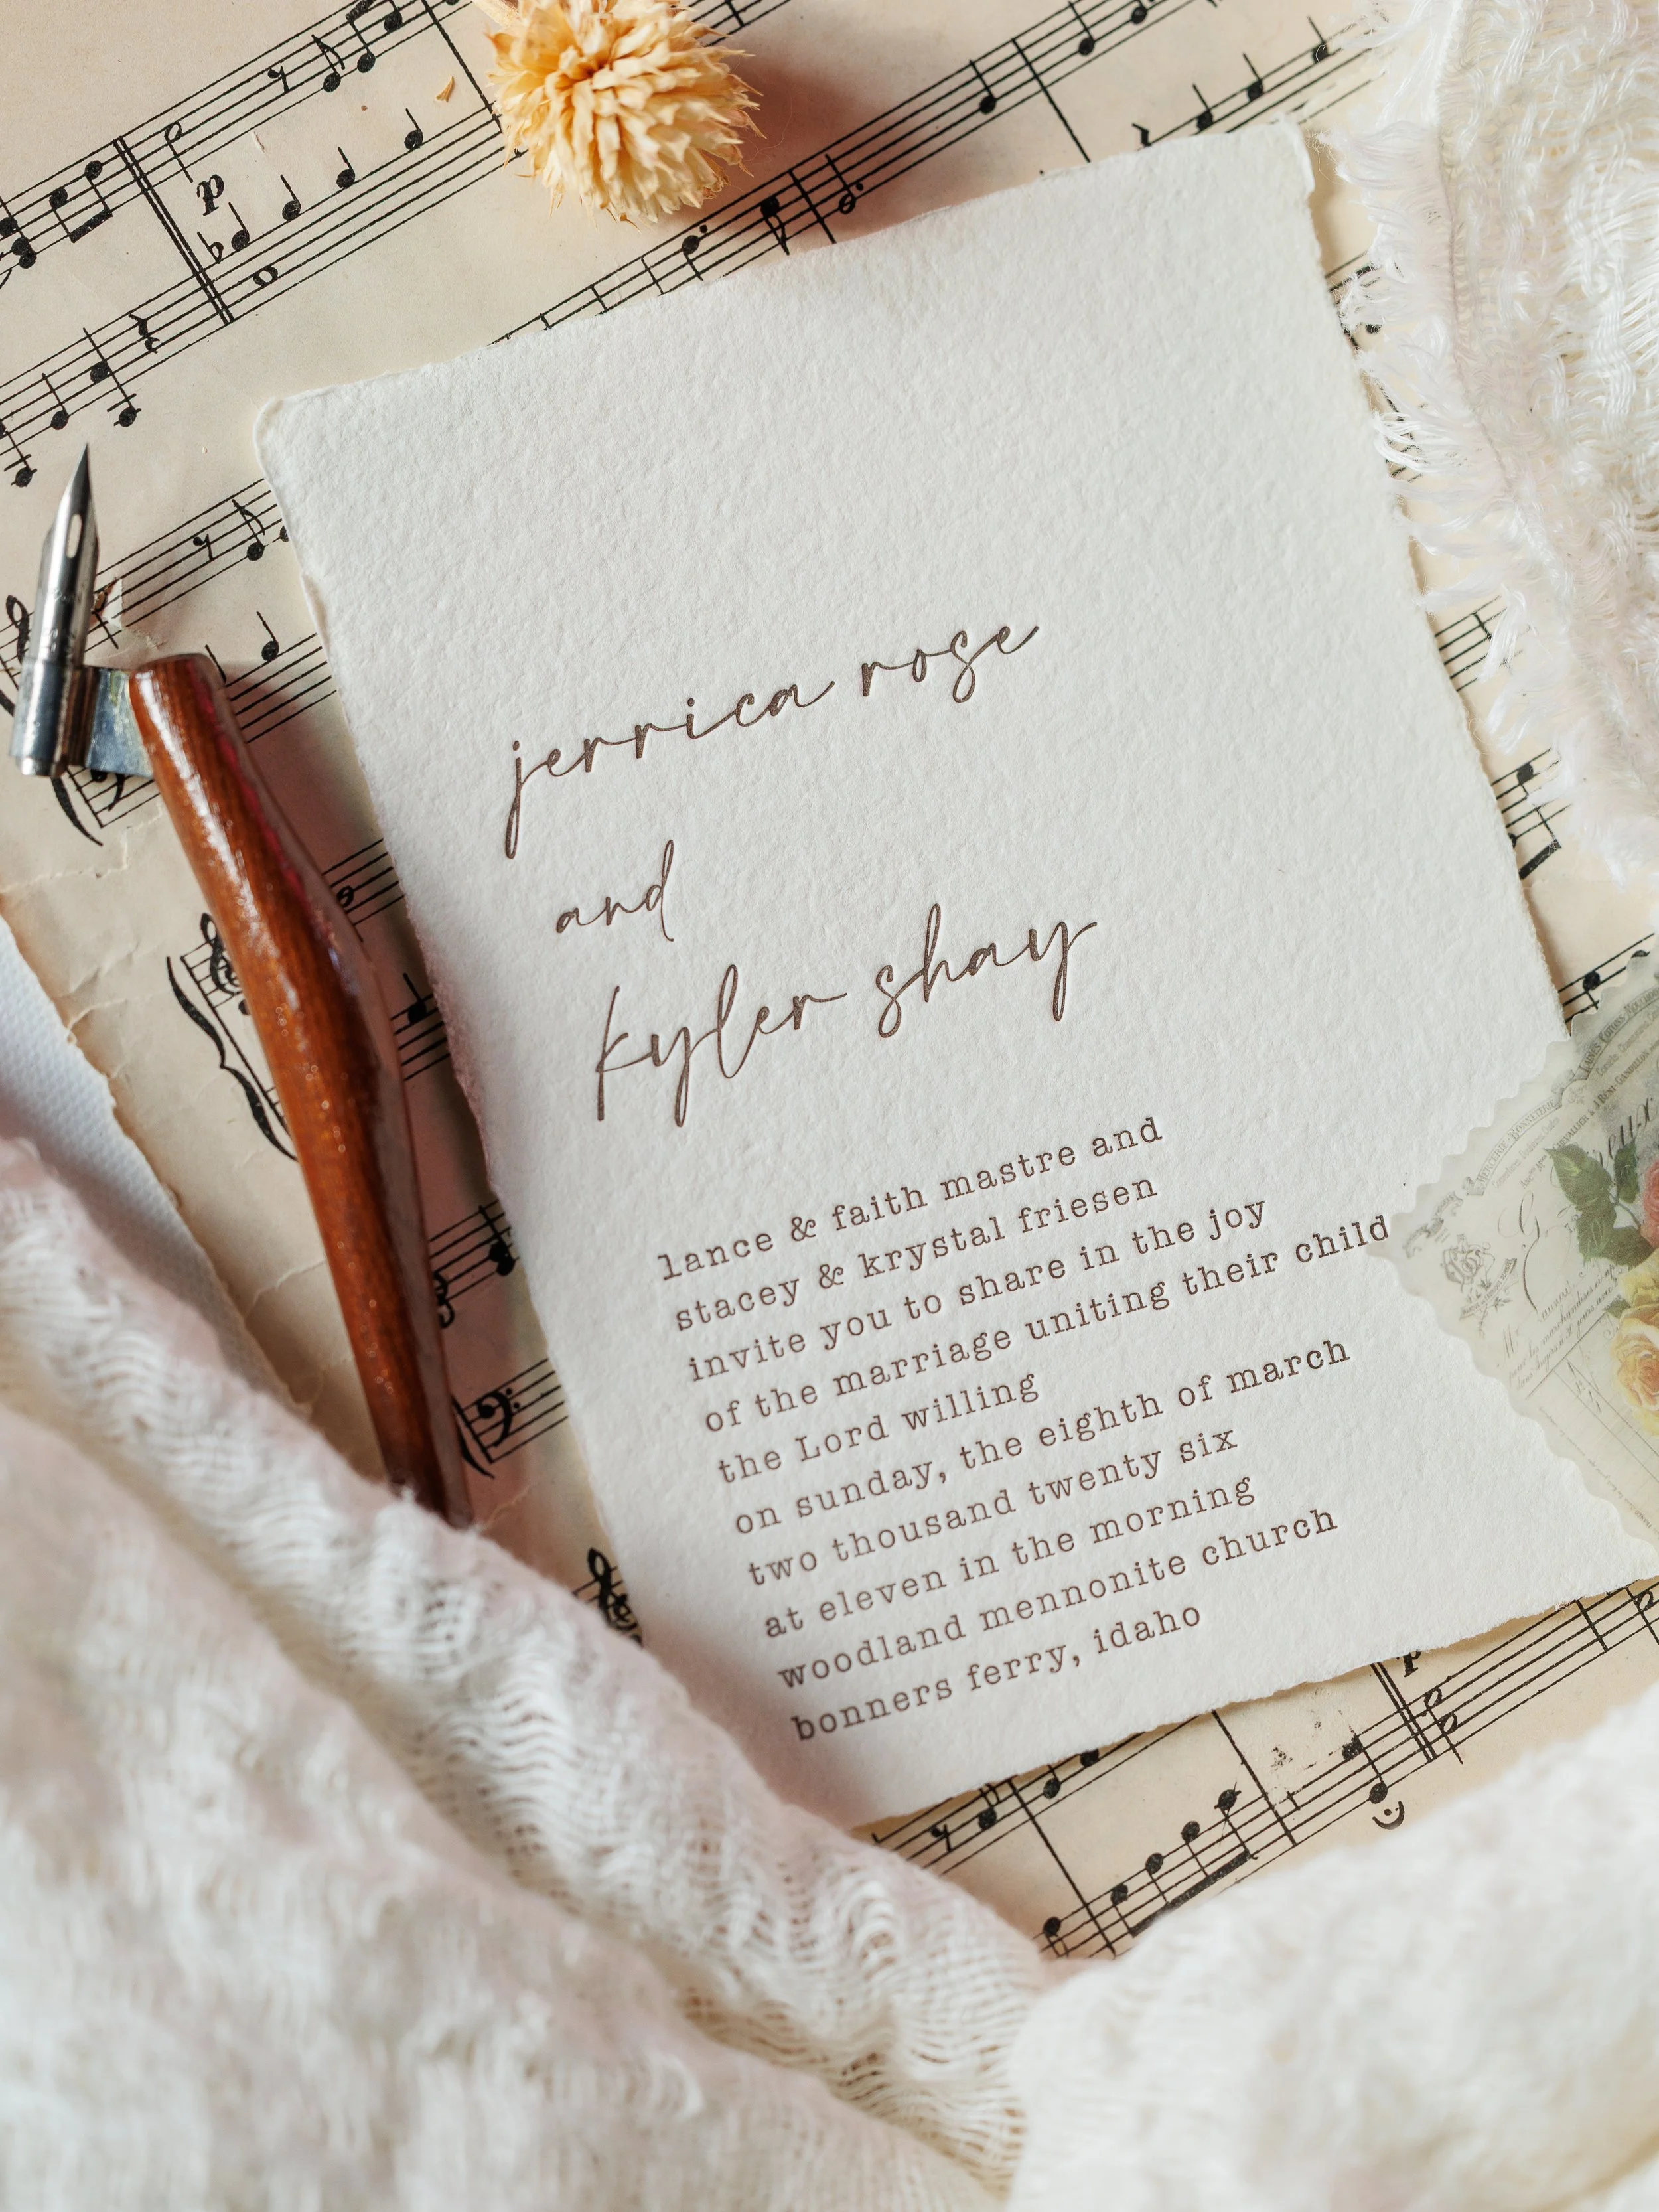 jerrica rose
and
kyler shay
lance & faith mastre and
stacey & krystal friesen
invite you to share in the joy
of the marriage uniting their child
the Lord willing
on sunday, the eighth of march
two thousand twenty six
at eleven in the morning
woodland mennonite church
bonners ferry, idaho
p
p